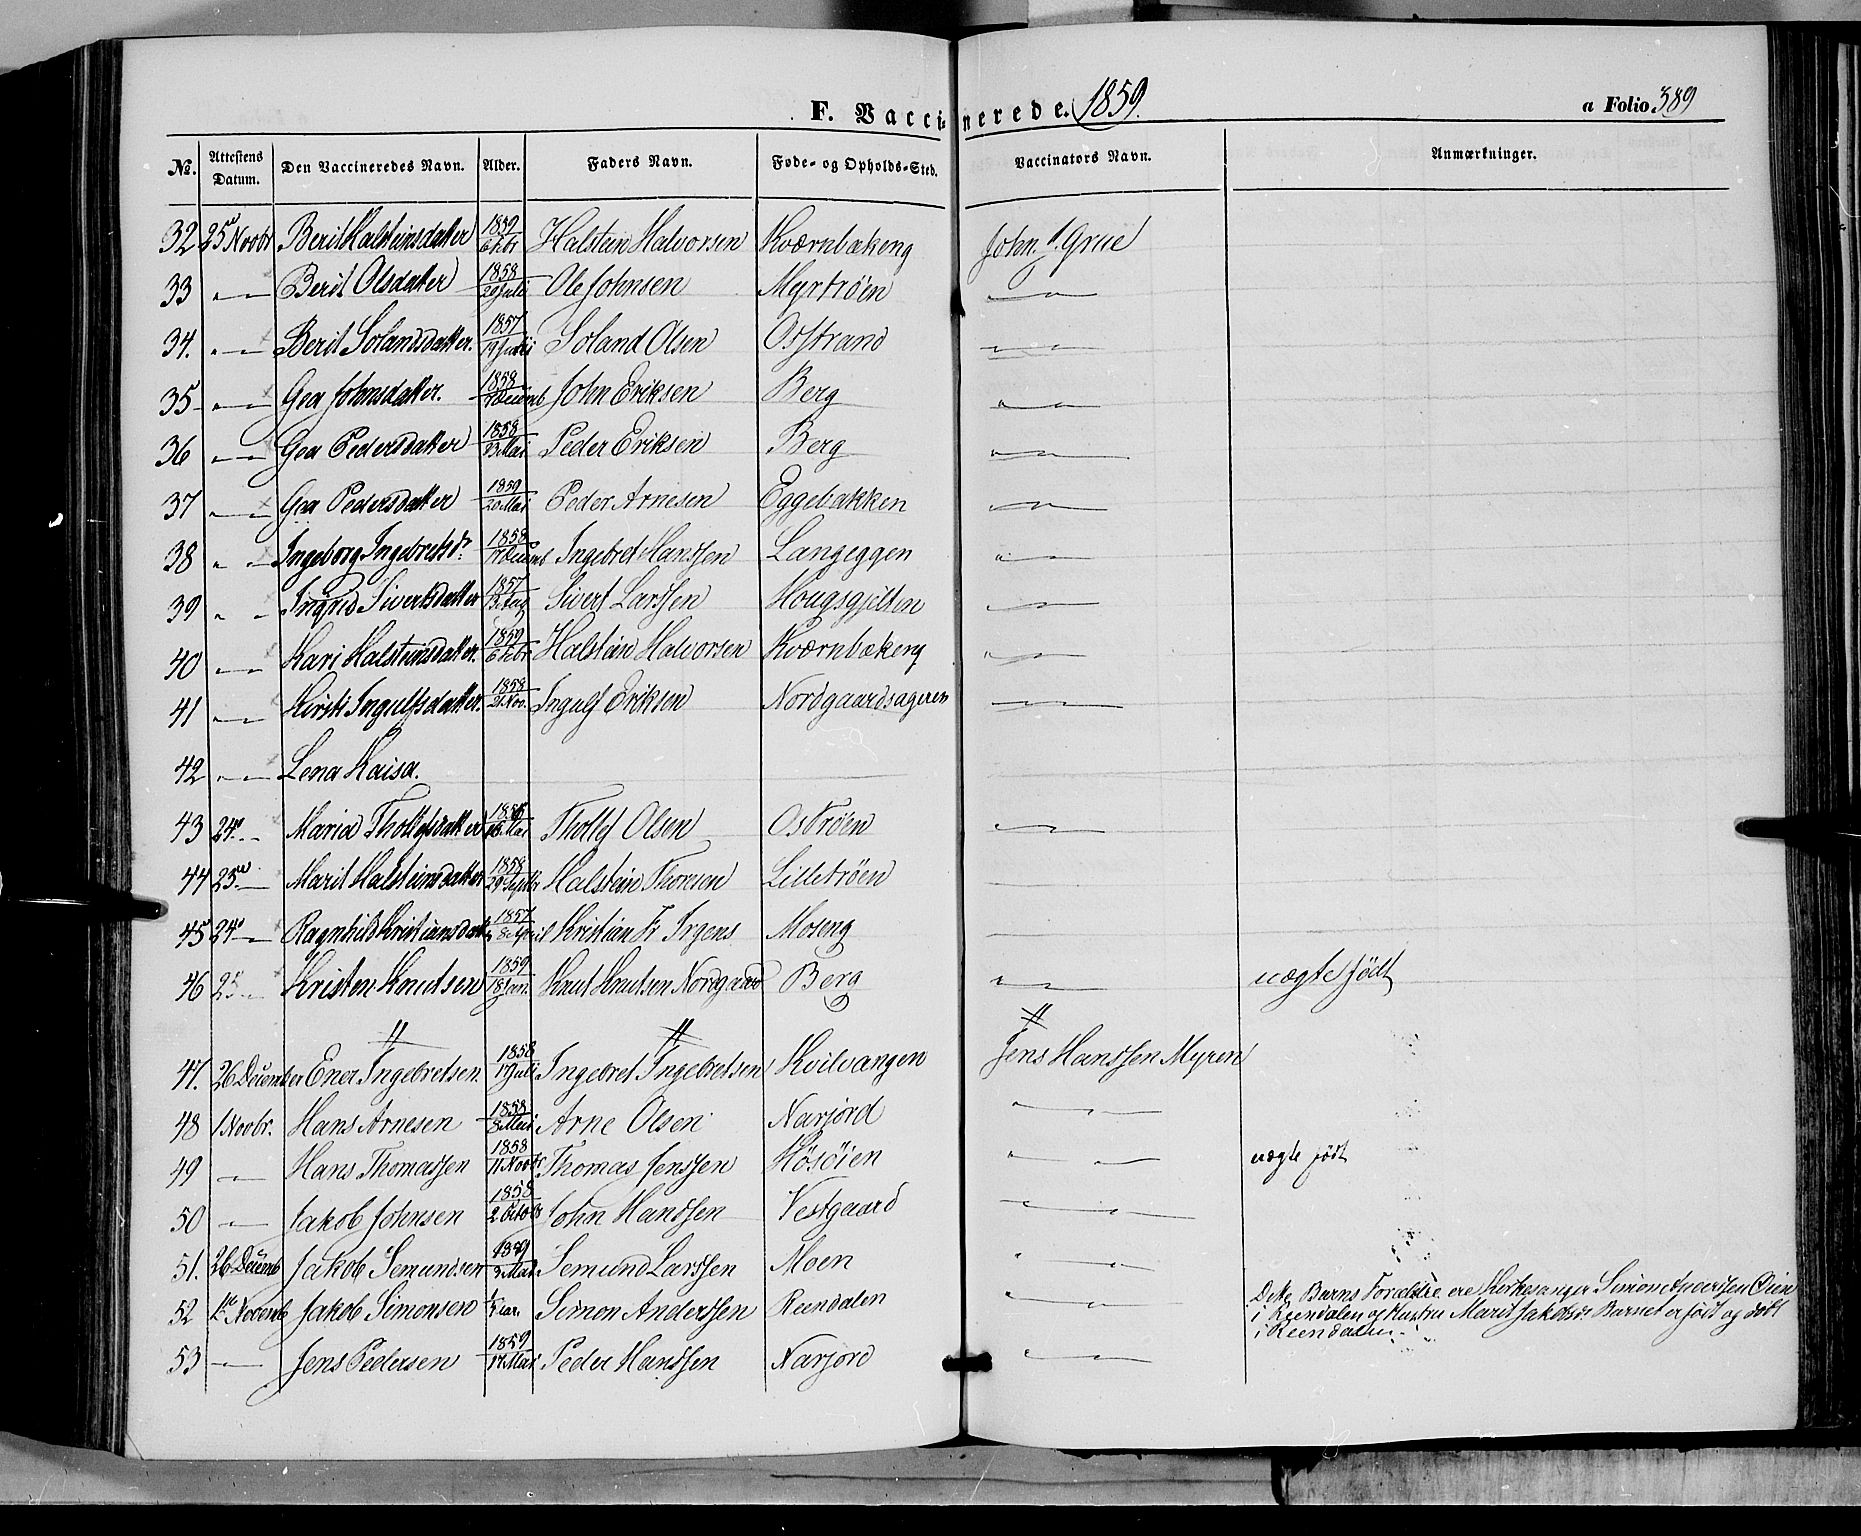 F. Vaccinerede. 1859. a Folio 389
No. Attestens Datum. Den Vaccineredes Navn. Alder. Faders Navn. Føde- og Opholds-Sted. Vaccinators Navn. Anmærkninger.
32 25 Novbr Berit Halsteinsdatter 1859 6 Febr Halstein Halvorsen Kværnbakeng John Grue
33 " — Berit Olsdatter 1858 20 Juli Ole Johnsen Myrtrøen " "
34. " — Berit Solandsdatter. 1857 19 Soland Olsen Osstrand " "
35 " — Gea Johnsdatter. 1858 Decemb John Eriksen Berg " "
36 " — Gea Pedersdatter 1858 23 Mai Peder Eriksen Berg " "
37 " — Gea Pedersdatter 1859 20 Mai Peder Arnesen Eggebakken " "
38 " " Ingeborg Ingebretsdr 1858 Decemb Ingebret Hanssen Langeggen " "
39 " " Ingrid Sivertsdatter 1857 Aug Sivert Larssen Hougsgjelten " "
40 " — Kari Halsteinsdatter. 1859 6 Febr Halstein Halvorsen Kværnbakeng " "
41 " — Kirsti Ingulfsdatter. 1858 21 Nov. Ingulf Eriksen Nordgaardsageren " "
42 " — Lena Kaisa.
43 24de " Maria Thollefsdatter Mai Tholly Olsen Ostrøen " "
44 25de — Marit Halsteinsdatter 1858 29 Septbr Halstein Thoresen Lilletrøen —
45 24de — Ragnhild Kristiansdatt 1857 8 April Kristian Fr Irgens Moseng —
46 25 " Kristen Knutsen 1859 18 Jan. Knut Knutsen Nordgaard Berg " " uægte født
" " "
47. 26 December Ener Ingebretsen 1858 17 Juli Ingebret Ingebretsen Kvilvangen Jens Hanssen Myren
48 1 Novbr. Hans Arnesen 1858 8 Mai Arne Olsen Narjord " "
49 " — Hans Thomassen 1858 11 Novbr Thomas Jenssen Høsøien " " uægte født
50 " — Jakob Johnsen 1858 2 Octobr John Hanssen Vestgaard " "
51. 26 Decemb Jakob Semundsen 1859 Mai Semund Larssen Moen " "
52 1de Novemb Jakob Simonsen Simon Anderssen Reendalen " " Dette Barns Forældre ere Kirkesanger Simon Anderssen Øien
i Reendalen og Hustru Marit Jakobsd. Barnet er født og døbt
i Reendalen.
53 " — Jens Pedersen 1859 17 Mai Peder Hanssen Narjord " "